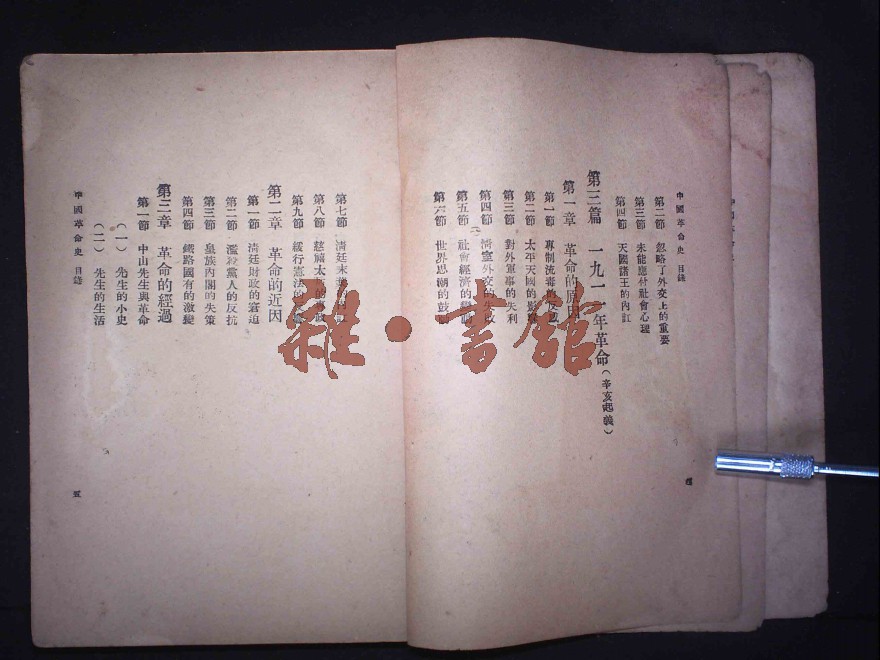 中國革命史 目錄
第二節 忽略了外交上的重要
第三節 未能應付社會心理
第四節 天國諸王的內訌
第三篇 一九一一年革命(辛亥起義)
第一章 革命的原因
第一節 專制流毒的
第二節 太平天國的影響
第三節 對外軍事的失利
第四節 清室外交的失敗
第五節 社會經濟的
第六節 世界思潮的鼓
第七節 清廷末
第八節 慈禧太
第九節 緩行憲法的
第二章 革命的近因
第一節 清廷財政的窘迫
第二節 濫殺黨人的反抗
第三節 皇族內閣的失策
第四節 鐵路國有的激變
第三章 革命的經過
第一節 中山先生與革命
(一) 先生的小史
(二) 先生的生活
中國革命史 目錄
五
雜·書館